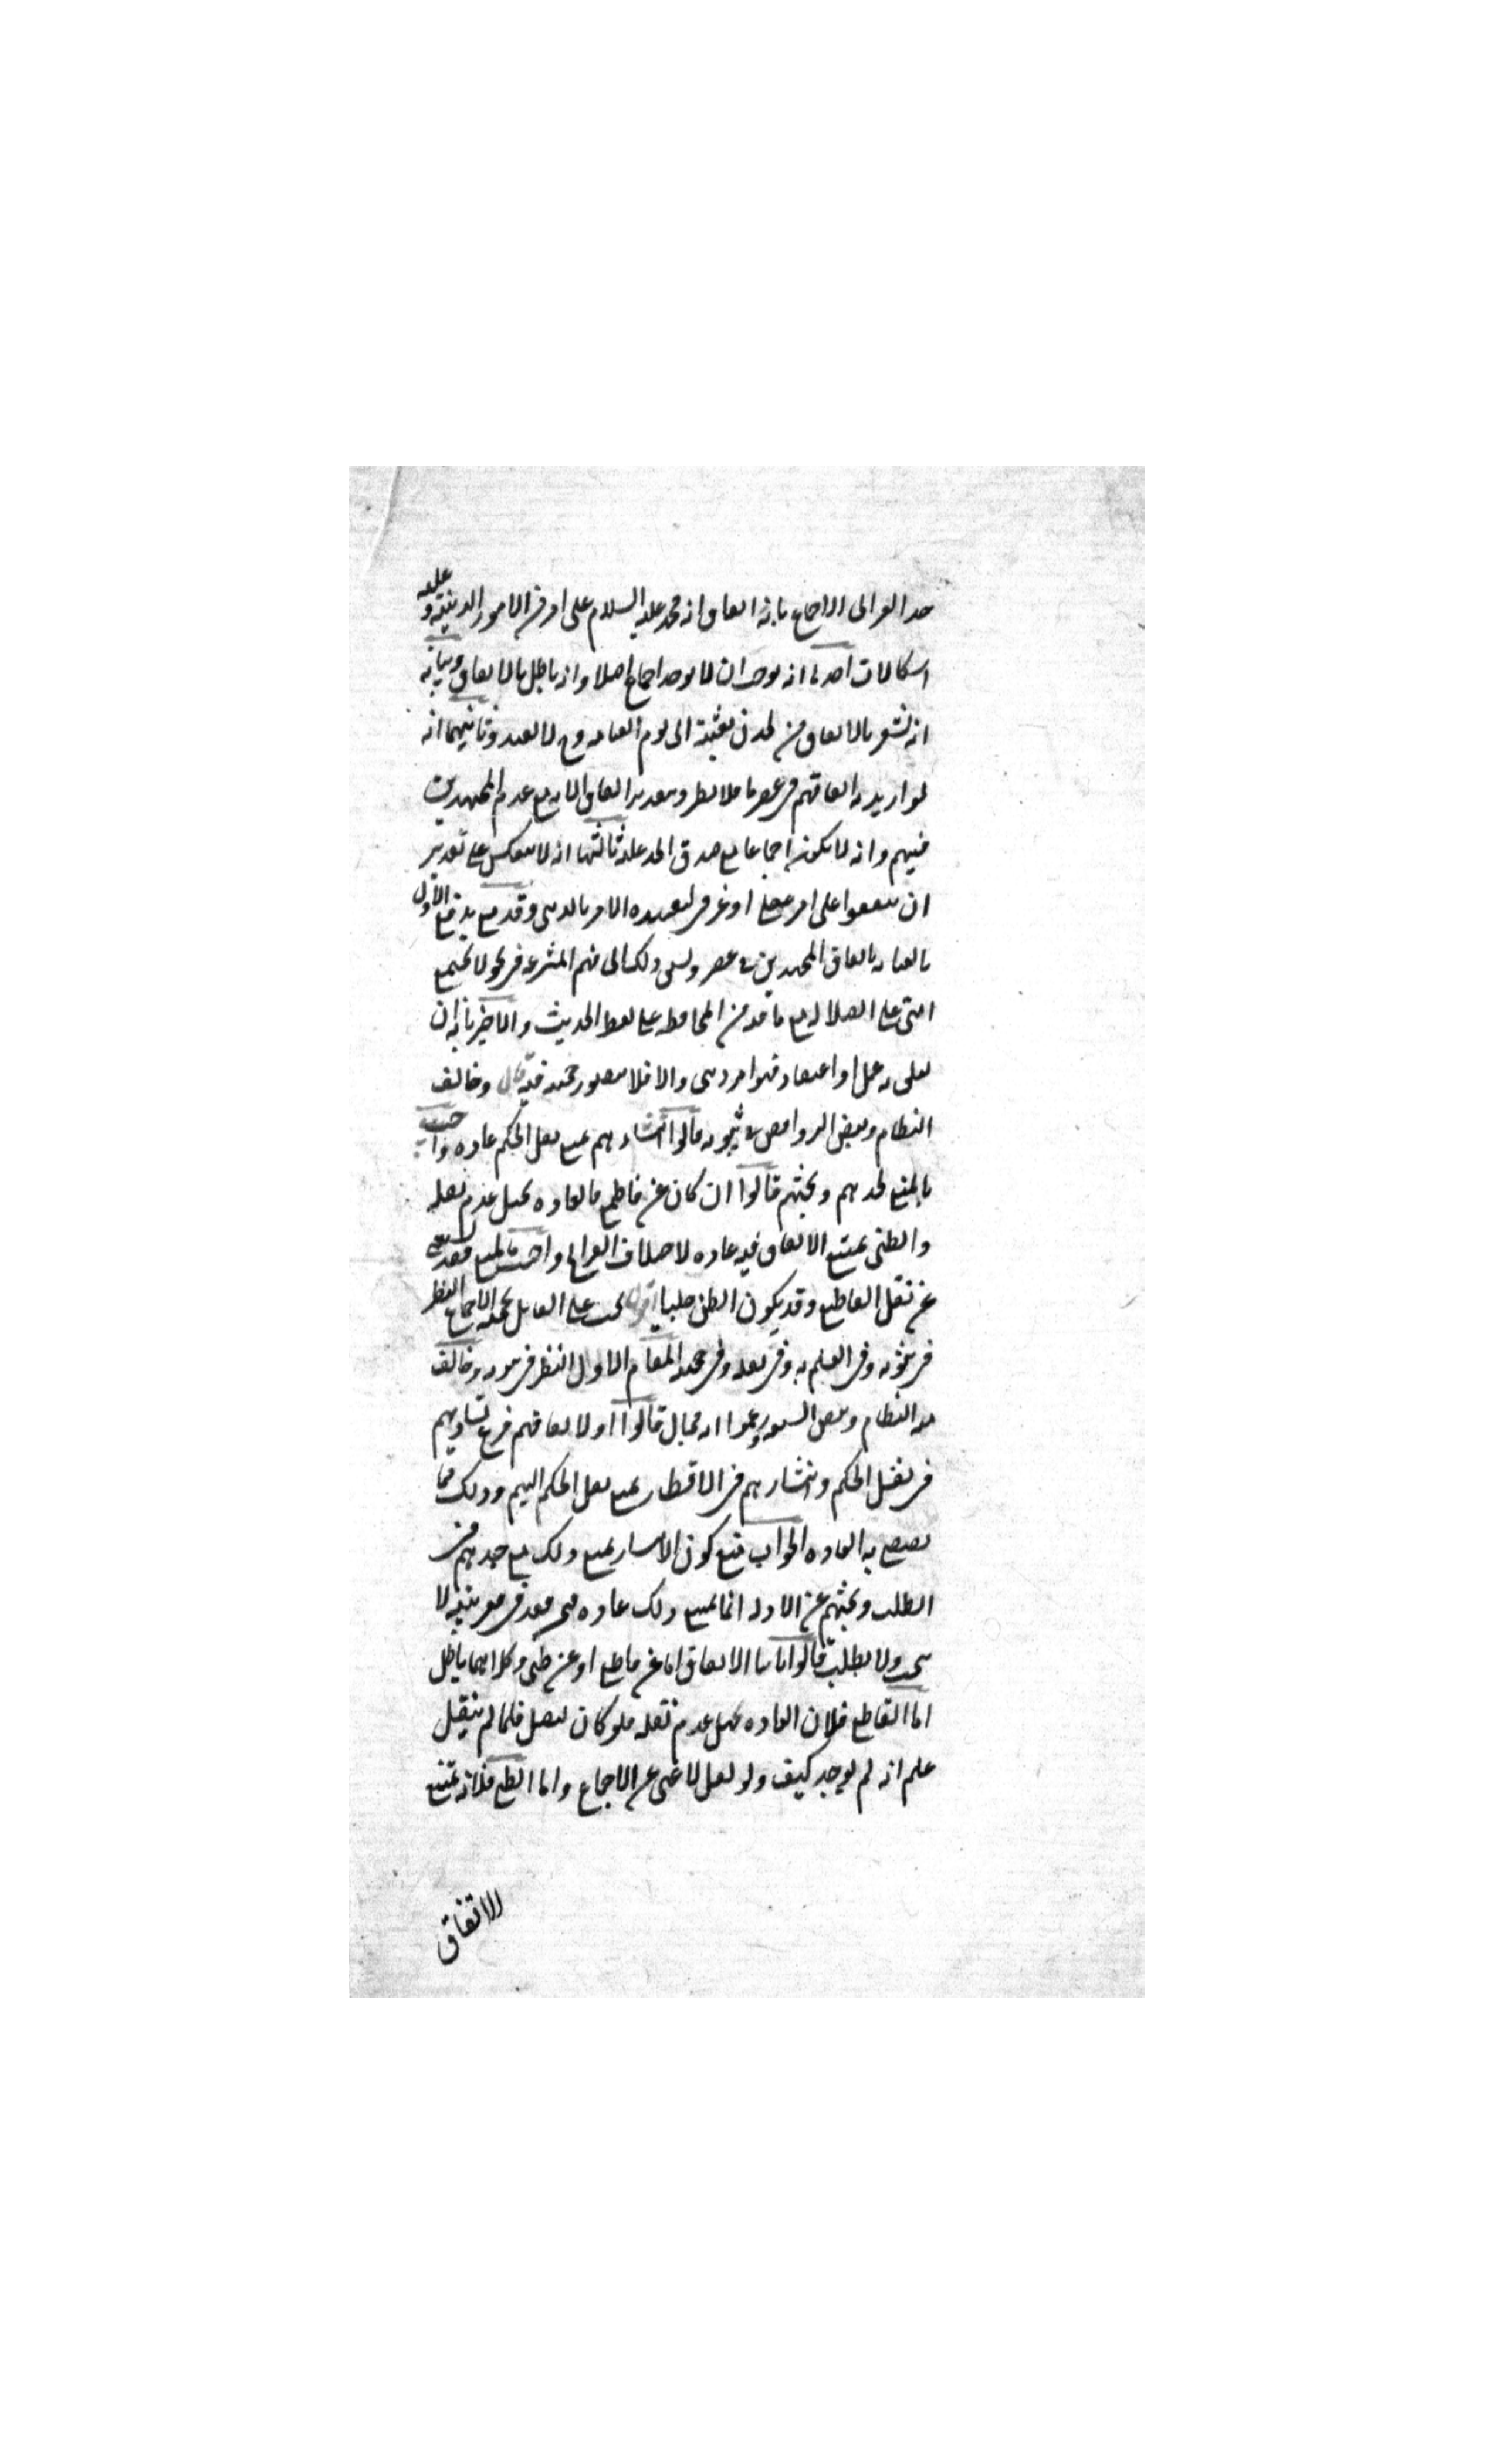 حد الغزالى الاجماع بانه اتفاق امة محمد عليه السلام على امر من الامور الدينية وعليه
اشكالات احدها انه يوجب ان لا يوجد اجماع اصلا وانه باطل بالاتفاق وبيانه
انه يشعر بالاتفاق من لدن بعثته الى يوم القيامة وح لا يفيد وثانيهما انه
لو اريد به اتفاقهم فى عصر ما فلا يطرد بتقدير اتفاق الامة مع عدم المجتهدين
فيهم وانه لا يكون اجماعا مع صدق الحد عليه ثالثها انه لا ينعكس على تقدير
ان يتفقوا على امر عقلى او عرفى لتقييده الامر بالدينى وقد يدفع الاول
بالعناية باتفاق المجتهدين فى عصر وسبق ذلك الى فهم المتشرعة فى نحو لا تجتمع
امتى على الضلالة مع ما فيه من المحافظة على لفظ الحديث والاخير بانه ان
تعلق به عمل او اعتقاد فهو امر دينى والا فلا يتصور حجيته فيه قال وخالف
النظام وبعض الروافض فى ثبوته قالوا انتشارهم يمنع نقل الحكم عادة واجيب
بالمنع لجدهم وبحثهم قالوا ان كان عن قاطع فالعادة تحيل عدم نقله
والظنى يمتنع الاتفاق فيه عادة لاختلاف القرائح واجيب بالمنع فقد يستغنى
عن نقل القاطع وقد يكون الظنى جليا اقول يجب على القائل بحجية الاجماع النظر
فى ثبوته وفى العلم به وفى نقله وفى حجيته المقام الاول النظر فى ثبوته وخالف
فيه النظام وبعض الشيعة وزعموا انه محال قالوا اولا اتفاقهم فرع تساويهم
فى نقل الحكم وانتشارهم فى الاقطار يمنع نقل الحكم اليهم وذلك مما
يقضى به العادة الجواب منع كون الانتشار يمنع ذلك مع جدهم فى
الطلب وبحثهم عن الادلة انما يمتنع ذلك عادة فيمن قعد فى قعر بيته لا
يبحث ولا يطلب قالوا ثانيا الاتفاق اما عن قاطع او عن ظنى وكلاهما باطل
اما القاطع فلان العادة تحيل عدم نقله فلو كان لنقل فلما لم ينقل
علم انه لم يوجد كيف ولو نقل لاغنى عن الاجماع واما الظنى فلانه يمتنع
الاتفاق